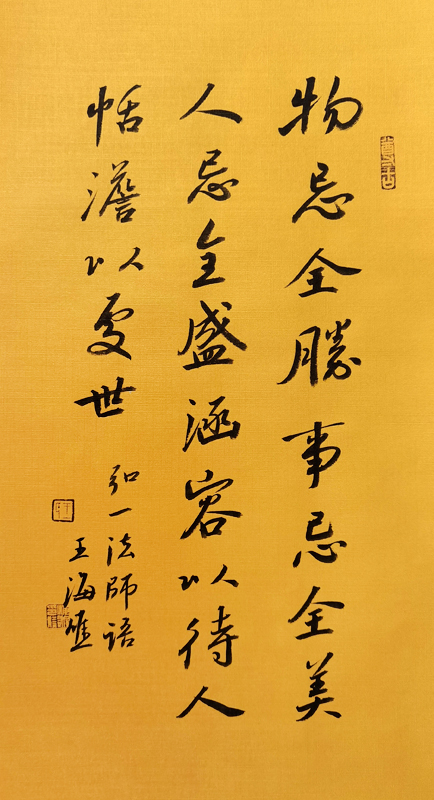 物忌全勝事忌全美
人忌全盛涵容以待人
恬澹以處世
弘一法師語
王海雁